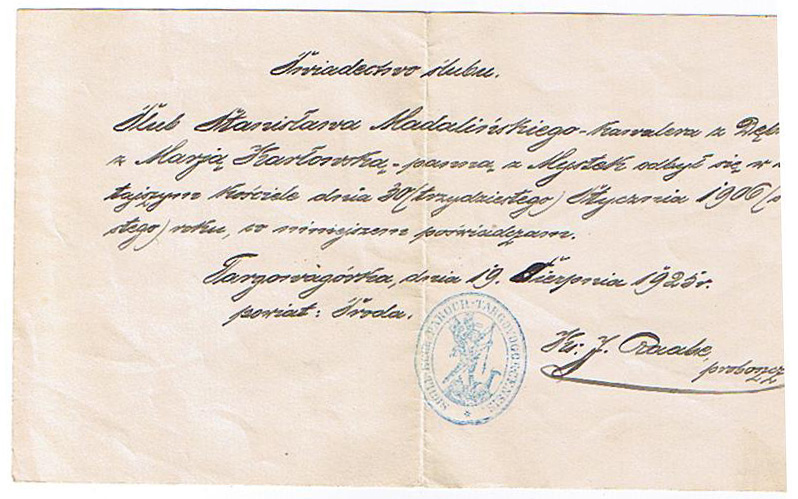 Świadectwo ślubu.
Ślub Stanisława Madalińskiego - kawalera z Dęb
z Marją Karłowską - panną z Mystek odbył się w
tajszym kościele dnia 30 (trzydziestego) Stycznia 1906 (s
stego) roku, co niniejszem poświadczam.
Targowagórka, dnia 19. Sierpnia 1925 r.
powiat: Środa.
SIGILL. ECCL. PAROCH. TARGOVOGORCENSIS
Ks. J. Raabe,
proboszcz